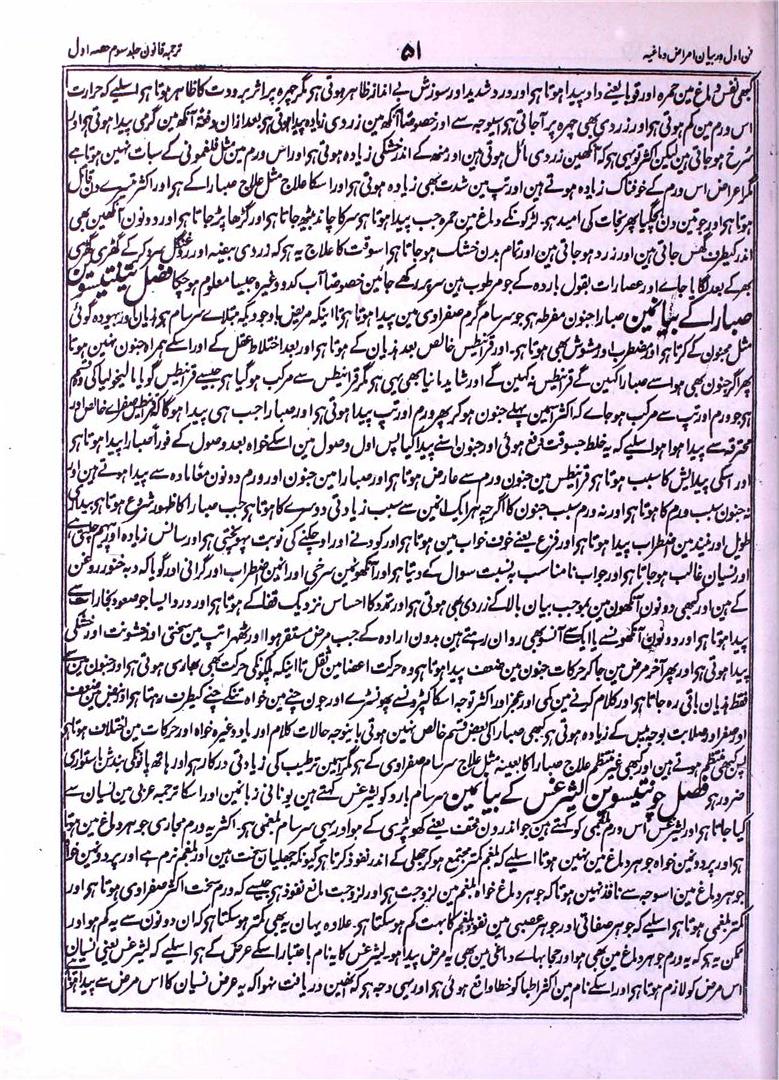 فن اول در بیان امراض دماغیہ ۵۱ ترجمہ قانون جلد سوم حصہ اول
کبھی نفس دماغ مین حمرہ اور قوبا یعنے داد پیدا ہوتا ہے اور درد شدید اور سوزش بے اندازہ ظاہر ہوتی ہے مگر چہرہ پر اثر برودت کا ظاہر ہوتا ہے اسلیے کہ حرارت
اس ورم مین کم ہوتی ہے اور زردی بھی چہرہ پر آجاتی ہے اسیوجہ سے اور خصوصاً آنکھ مین زردی زیادہ پیدا ہوتی ہے بعد ازان دفعۃً آنکھ مین گرمی پیدا ہوتی ہے اور
سُرخ ہوجاتی ہین لیکن اکثر تو یہی ہے کہ آنکھین زردی مائل ہوتی ہین اور منھ کے اندر خشکی زیادہ ہوتی ہے اور اس ورم مین مثل فلغمونی کے سبات نہین ہوتا ہے
مگر اعراض اس ورم کے خوفناک زیادہ ہوتے ہین اور تپ مین شدت بھی زیادہ ہوتی ہے اور اسکا علاج مثل علاج صبارا کے ہے اور اکثر تیسرے دن قاتل
ہوتا ہے اور جو تین دن بچ گیا پھر نجات کی امید ہے۔ لڑکونکے دماغ مین حمرہ جب پیدا ہوتا ہے سر کا چاند بیٹھ جاتا ہے اور گڑھا پڑ جاتا ہے اور دونون آنکھین بھی
اندر کیطرف گھس جاتی ہین اور زرد ہو جاتی ہین اور تمام بدن خشک ہو جاتا ہے اسوقت کا علاج یہ ہے کہ زردی بیضہ اور روغن گل سرد کرکے گھڑی گھڑی
بھر کے بعد لگایا جاے اور عصارات بقول باردہ کے جو مرطوب ہین سر پر رکھے جائین خصوصاً آب کدو وغیرہ جیسا معلوم ہو چکا فصل تینتیسوین
صبارا کے بیانمین صبارا جنون مفرط ہے جو سرسام گرم صفراوی مین پیدا ہوتا ہے تا اینکہ مریض باوجودیکہ مبتلاے سرسام ہے ہذیان اور بیہودہ گوئی
مثل مجنون کے کرتا ہے اور مضطرب اور مشوش بھی ہوتا ہے۔ اور قرانیطس خالص بعد ہذیان کے ہوتا ہے اور بعد اختلاط عقل کے اور اسکے ہمراہ جنون نہین ہوتا
پھر اگر جنون بھی ہو اسے صبارا کہین گے قرانیطس نہ کہین گے اور شاید مانیا بھی یہی ہے مگر قرانیطس سے مرکب ہوگیا ہے جیسے قرانیطس گویا مالیخولیا کی وہ قسم
ہے جو ورم اور تپ سے مرکب ہو جاے کہ اکثر اسمین پہلے جنون ہو کر پھر ورم اور تپ پیدا ہوتی ہے اور صبارا جب ہی پیدا ہوگا کہ قرانیطس صفراے خالص اور
محترقہ سے پیدا ہوا ہو اسلیے کہ یہ خلط جسوقت دفع ہوئی اور جنون اسنے پیدا کیا پس اول وصول مین اسکے خواہ بعد وصول کے فوراً صبارا پیدا ہوتا ہے
اور اسکی پیدایش کا سبب ہوتا ہے قرانیطس مین جنون ورم سے عارض ہوتا ہے اور صبارا مین جنون اور ورم دونون معاً مادہ سے پیدا ہوتے ہین اور
نہ جنون سبب ورم کا ہوتا ہے اور نہ ورم سبب جنون کا اگرچہ ہر ایک انمین سے سبب زیادتی دوسرے کا ہوتا ہے جب صبارا کا ظہور شروع ہوتا ہے بیداری
طویل اور نیند مین اضطراب پیدا ہوتا ہے اور فزع یعنے خوف خواب مین ہوتا ہے اور کودنے اور اوچکنے کی نوبت پہونچتی ہے اور سانس زیادہ اور پیہم چلتی ہے
اور نسیان غالب ہو جاتا ہے اور جواب نا مناسب بہ نسبت سوال کے دیتا ہے اور آنکھونمین سرخی اور انمین اضطراب اور گرانی اور گویا کہ دبہ خنور روغن
کے ہین اور کبھی دونون آنکھون مین بموجب بیان بالا کے زردی بھی ہوتی ہے اور تمدد کا احساس نزدیک قفا کے ہوتا ہے اور درد ایسا جو صعود بخارات سے
پیدا ہوتا ہے اور دونون آنکھونسے یا ایک سے آنسو بھی روان رہتے ہین بدون ارادہ کے جب مرض مستقر ہوا اور ٹھہرا تپ مین سختی اور خشونت اور خشکی
پیدا ہوتی ہے اور پھر آخر مرض مین جاکر حرکات جنون مین ضعف پیدا ہوتا ہے وہ حرکت اعضا مین ثقل تا اینکہ پلکونکی حرکت بھی بھاری ہوتی ہے اور جنون مین سے
فقط ہذیان باقی رہ جاتا ہے اور کلام کرنے مین کمی اور عجز اور اکثر توجہ اسکا کپڑونسے پھونسڑے اور چون چننے مین خواہ تنکے چننے کیطرف رہتا ہے اور نبض مین ضعف
اور صغر اور صلابت بوجہ یبس کے زیادہ ہوتی ہے کبھی صبارا کی بعض قسم خالص نہین ہوتی با ینوجہ حالات کلام اور یاد وغیرہ خواہ اور حرکات مین اختلاف ہوتا ہے
پس کبھی منتظم ہوتے ہین اور کبھی غیر منتظم علاج صبارا کا بعینہ مثل علاج سرسام صفراوی کے ہے مگر اسمین ترطیب کی زیادتی درکار ہے اور ہاتھ پانوکی بندش باستواری
ضرور ہے فصل چونتیسوین لیثرغس کے بیانمین سرسام بارد کو لیثرغس کہتے ہین یونانی زبانمین اور اسکا ترجمہ عربی مین نسیان سے
کیا جاتا ہے اور لیثرغس اس ورم بلغمی کو کہتے ہین جو اندرون قحف یعنے کھوپڑی کے ہو اور یہی سرسام بلغمی ہے۔ اکثر یہ ورم مجاری جوہر دماغ مین ہوتا
ہے اور پردونمین خواہ جوہر دماغ مین نہین ہوتا اسلیے کہ بلغم کمتر مجتمع ہوکر جھلی کے اندر نفوذ کرتا ہے کیونکہ جھلیان سخت ہین اور بلغم نرم ہے اور پردونمین خواہ
جوہر دماغ مین اسوجہ سے نافذ نہین ہوتا کہ جوہر دماغ خواہ بلغم مین لزوجت ہے اور لزوجت مانع نفوذ ہے جیسے کہ ورم سخت اکثر صفراوی ہوتا ہے اور
کمتر بلغمی ہوتا ہے اسلیے کہ جوہر صفاقی اور جوہر عصبی مین نفوذ بلغم کا بہت کم ہو سکتا ہے۔ علاوہ یہان یہ بھی کمتر ہوسکتا ہے کہ ان دونون سے یہ کم ہو اور
ممکن یہ ہے کہ یہ ورم جوہر دماغ مین بھی ہو اور حجابہاے دماغی مین بھی یہ مرض پیدا ہو۔ لیثرغس کا یہ نام باعتبار اسکے عرض کے ہے اسلیے کہ لیثرغس یعنی نسیان
اس مرض کو لازم ہوتا ہے اور اسکے نام مین اکثر اطبا کو خطا واقع ہوئی ہے اور یہی وجہ ہے کہ انھین دریافت نہوا کہ یہ عرض نسیان کا اس مرض سے پیدا ہوتا